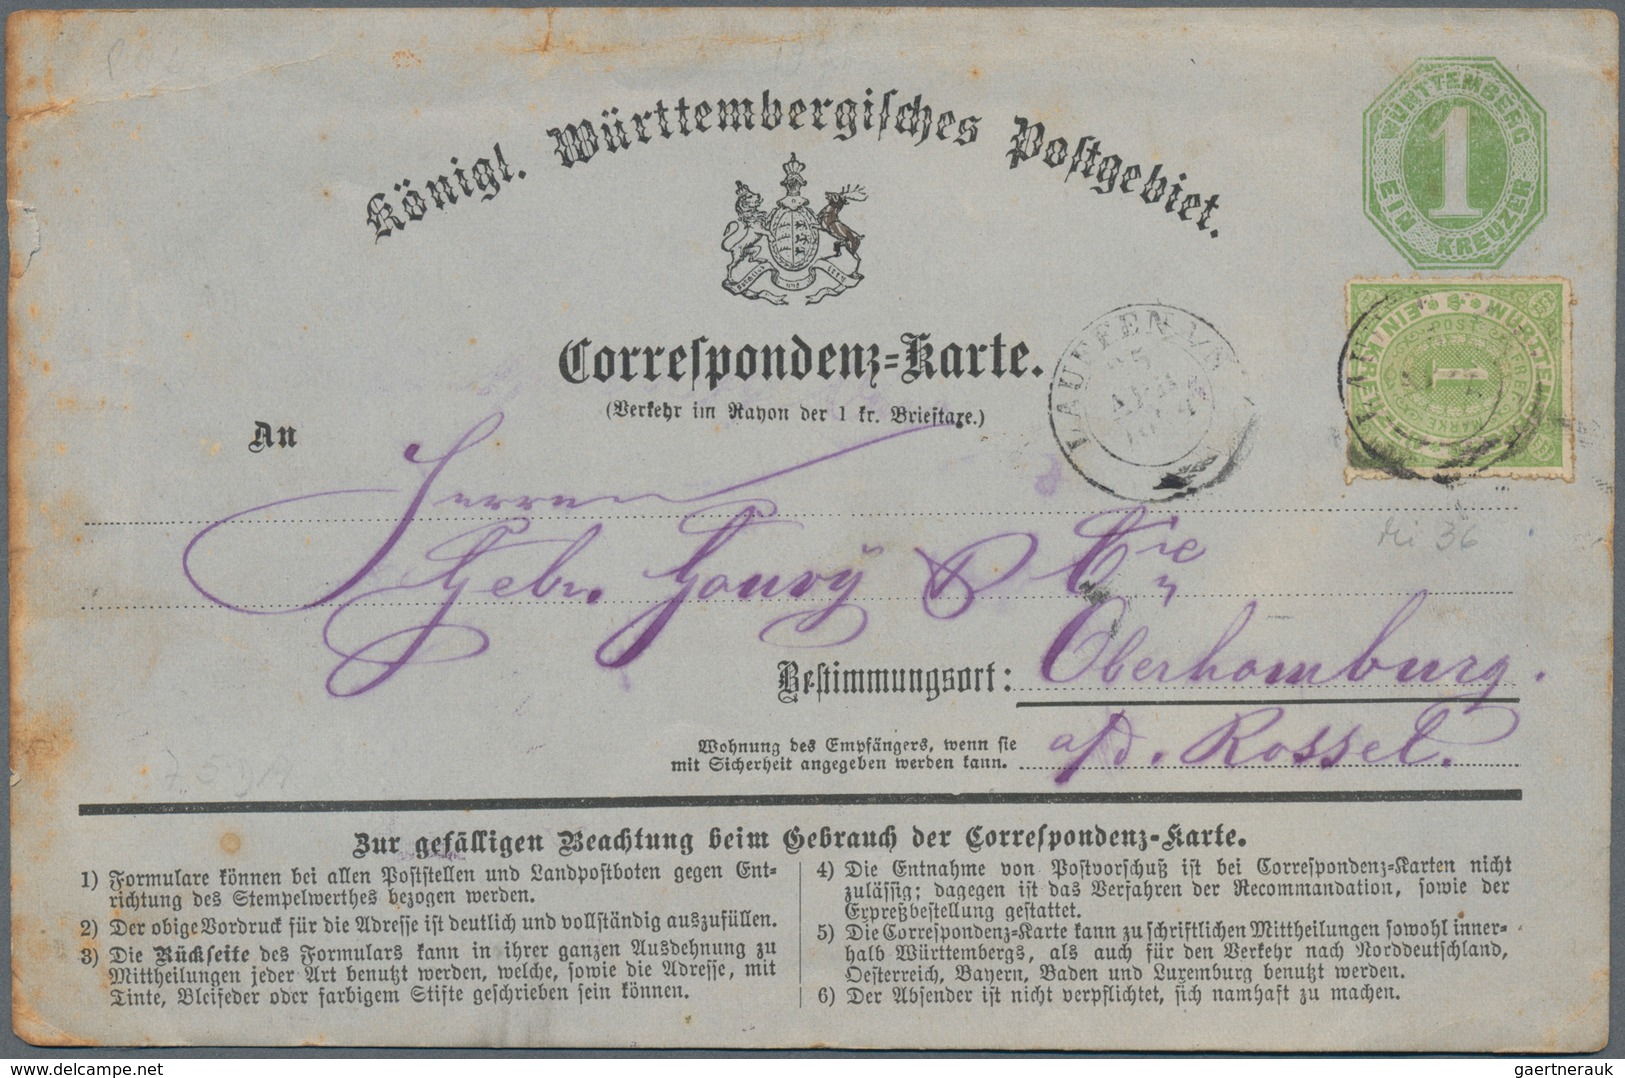 Königl. Württembergisches Postgebiet.
WÜRTTEMBERG
1
EIN KREUZER
Correspondenz-Karte.
(Verkehr im Rayon der 1 kr. Brieftaxe.)
LAUFFEN
An
Herren
Gebr. Gouvy & Cie
Bestimmungsort: Oberhomburg.
Wohnung des Empfängers, wenn sie
mit Sicherheit angegeben werden kann.
a/d. Rossel.
Mi 36
Zur gefälligen Beachtung beim Gebrauch der Correspondenz-Karte.
1) Formulare können bei allen Poststellen und Landpostboten gegen Ent-
richtung des Stempelwerthes bezogen werden.
2) Der obige Vordruck für die Adresse ist deutlich und vollständig auszufüllen.
3) Die Rückseite des Formulars kann in ihrer ganzen Ausdehnung zu
Mittheilungen jeder Art benutzt werden, welche, sowie die Adresse, mit
Tinte, Bleifeder oder farbigem Stifte geschrieben sein können.
4) Die Entnahme von Postvorschuß ist bei Correspondenz-Karten nicht
zulässig; dagegen ist das Verfahren der Recommandation, sowie der
Expreßbestellung gestattet.
5) Die Correspondenz-Karte kann zu schriftlichen Mittheilungen sowohl inner-
halb Württembergs, als auch für den Verkehr nach Norddeutschland,
Oesterreich, Bayern, Baden und Luxemburg benutzt werden.
6) Der Absender ist nicht verpflichtet, sich namhaft zu machen.
www.delcampe.net
gaertnerauk